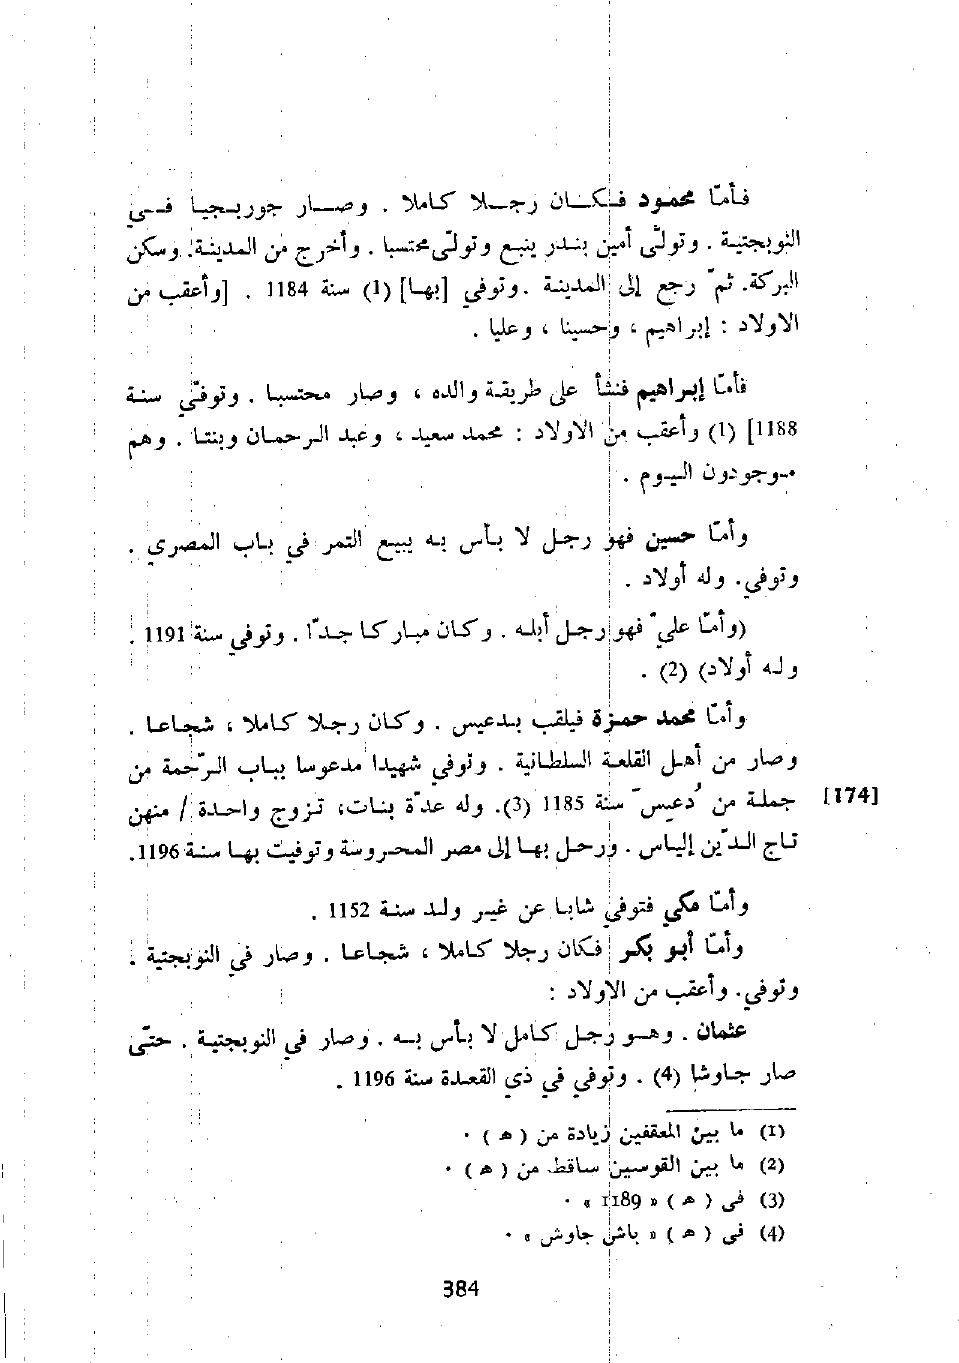 فأمّا محمود فكان رجلا كاملا . وصار جوربجيا في
النوبجتية . وتولّى أمين بندر ينبع وتولّى محتسبا . وأخرج من المدينة . وسكن
البركة. ثمّ رجع إلى المدينة . وتوفي [بها] (1) سنة 1184 . [وأعقب من
الاولاد : إبراهيم ، وحسينا ، وعليا .
فأمّا إبراهيم فنشأ على طريقة والده ، وصار محتسبا . وتوفّي سنة
1188] (1) وأعقب من الاولاد : محمد سعيد ، وعبد الرحمان وبنتا . وهم
موجودون اليوم .
وأمّا حسين فهو رجل لا بأس به يبيع التمر في باب المصري .
وتوفي. وله أولاد .
(وأمّا عليّ فهو رجل أبله . وكان مباركا جدّا . وتوفي سنة 1191 .
وله أولاد) (2) .
وأمّا محمد حمزة فيلقب بدعيس . وكان رجلا كاملا ، شجاعا .
وصار من أهل القلعة السلطانية . وتوفي شهيدا مدعوسا بباب الرّحمة من
جملة من دُعيسّ سنة 1185 (3). وله عدّة بنات، تزوج واحدة / منهن [174]
تاج الدّين إلياس . ورحل بها إلى مصر المحروسة وتوفيت بها سنة 1196.
وأمّا مكي فتوفي شابا عن غير ولد سنة 1152 .
وأمّا أبو بكر فكان رجلا كاملا ، شجاعا . وصار في النوبجتية .
وتوفي. وأعقب من الاولاد :
عثمان . وهو رجل كامل لا بأس به . وصار في النوبجتية . حتّى
صار جاوشا (4) . وتوفي في ذي القعدة سنة 1196 .
(1) ما بين المعقفين زيادة من ( ه ) .
(2) ما بين القوسين ساقط من ( ه ) .
(3) في ( ه ) « 1189 » .
(4) في ( ه ) « باش جاوش » .
384